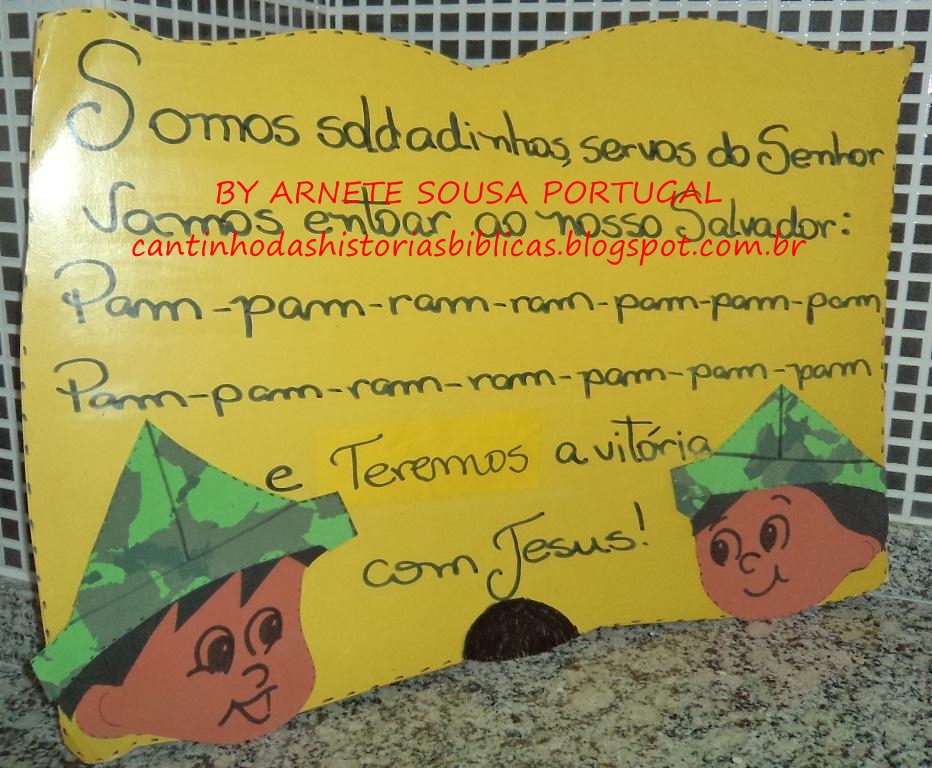 Somos soldadinhos, servos do Senhor
BY ARNETE SOUSA PORTUGAL
Vamos entoar ao nosso Salvador:
cantinhodashistoriasbiblicas.blogspot.com.br
Pam-pam-ram-ram-pam-pam-pam
Pam-pam-ram-ram-pam-pam-pam
e Teremos a vitória
com Jesus!